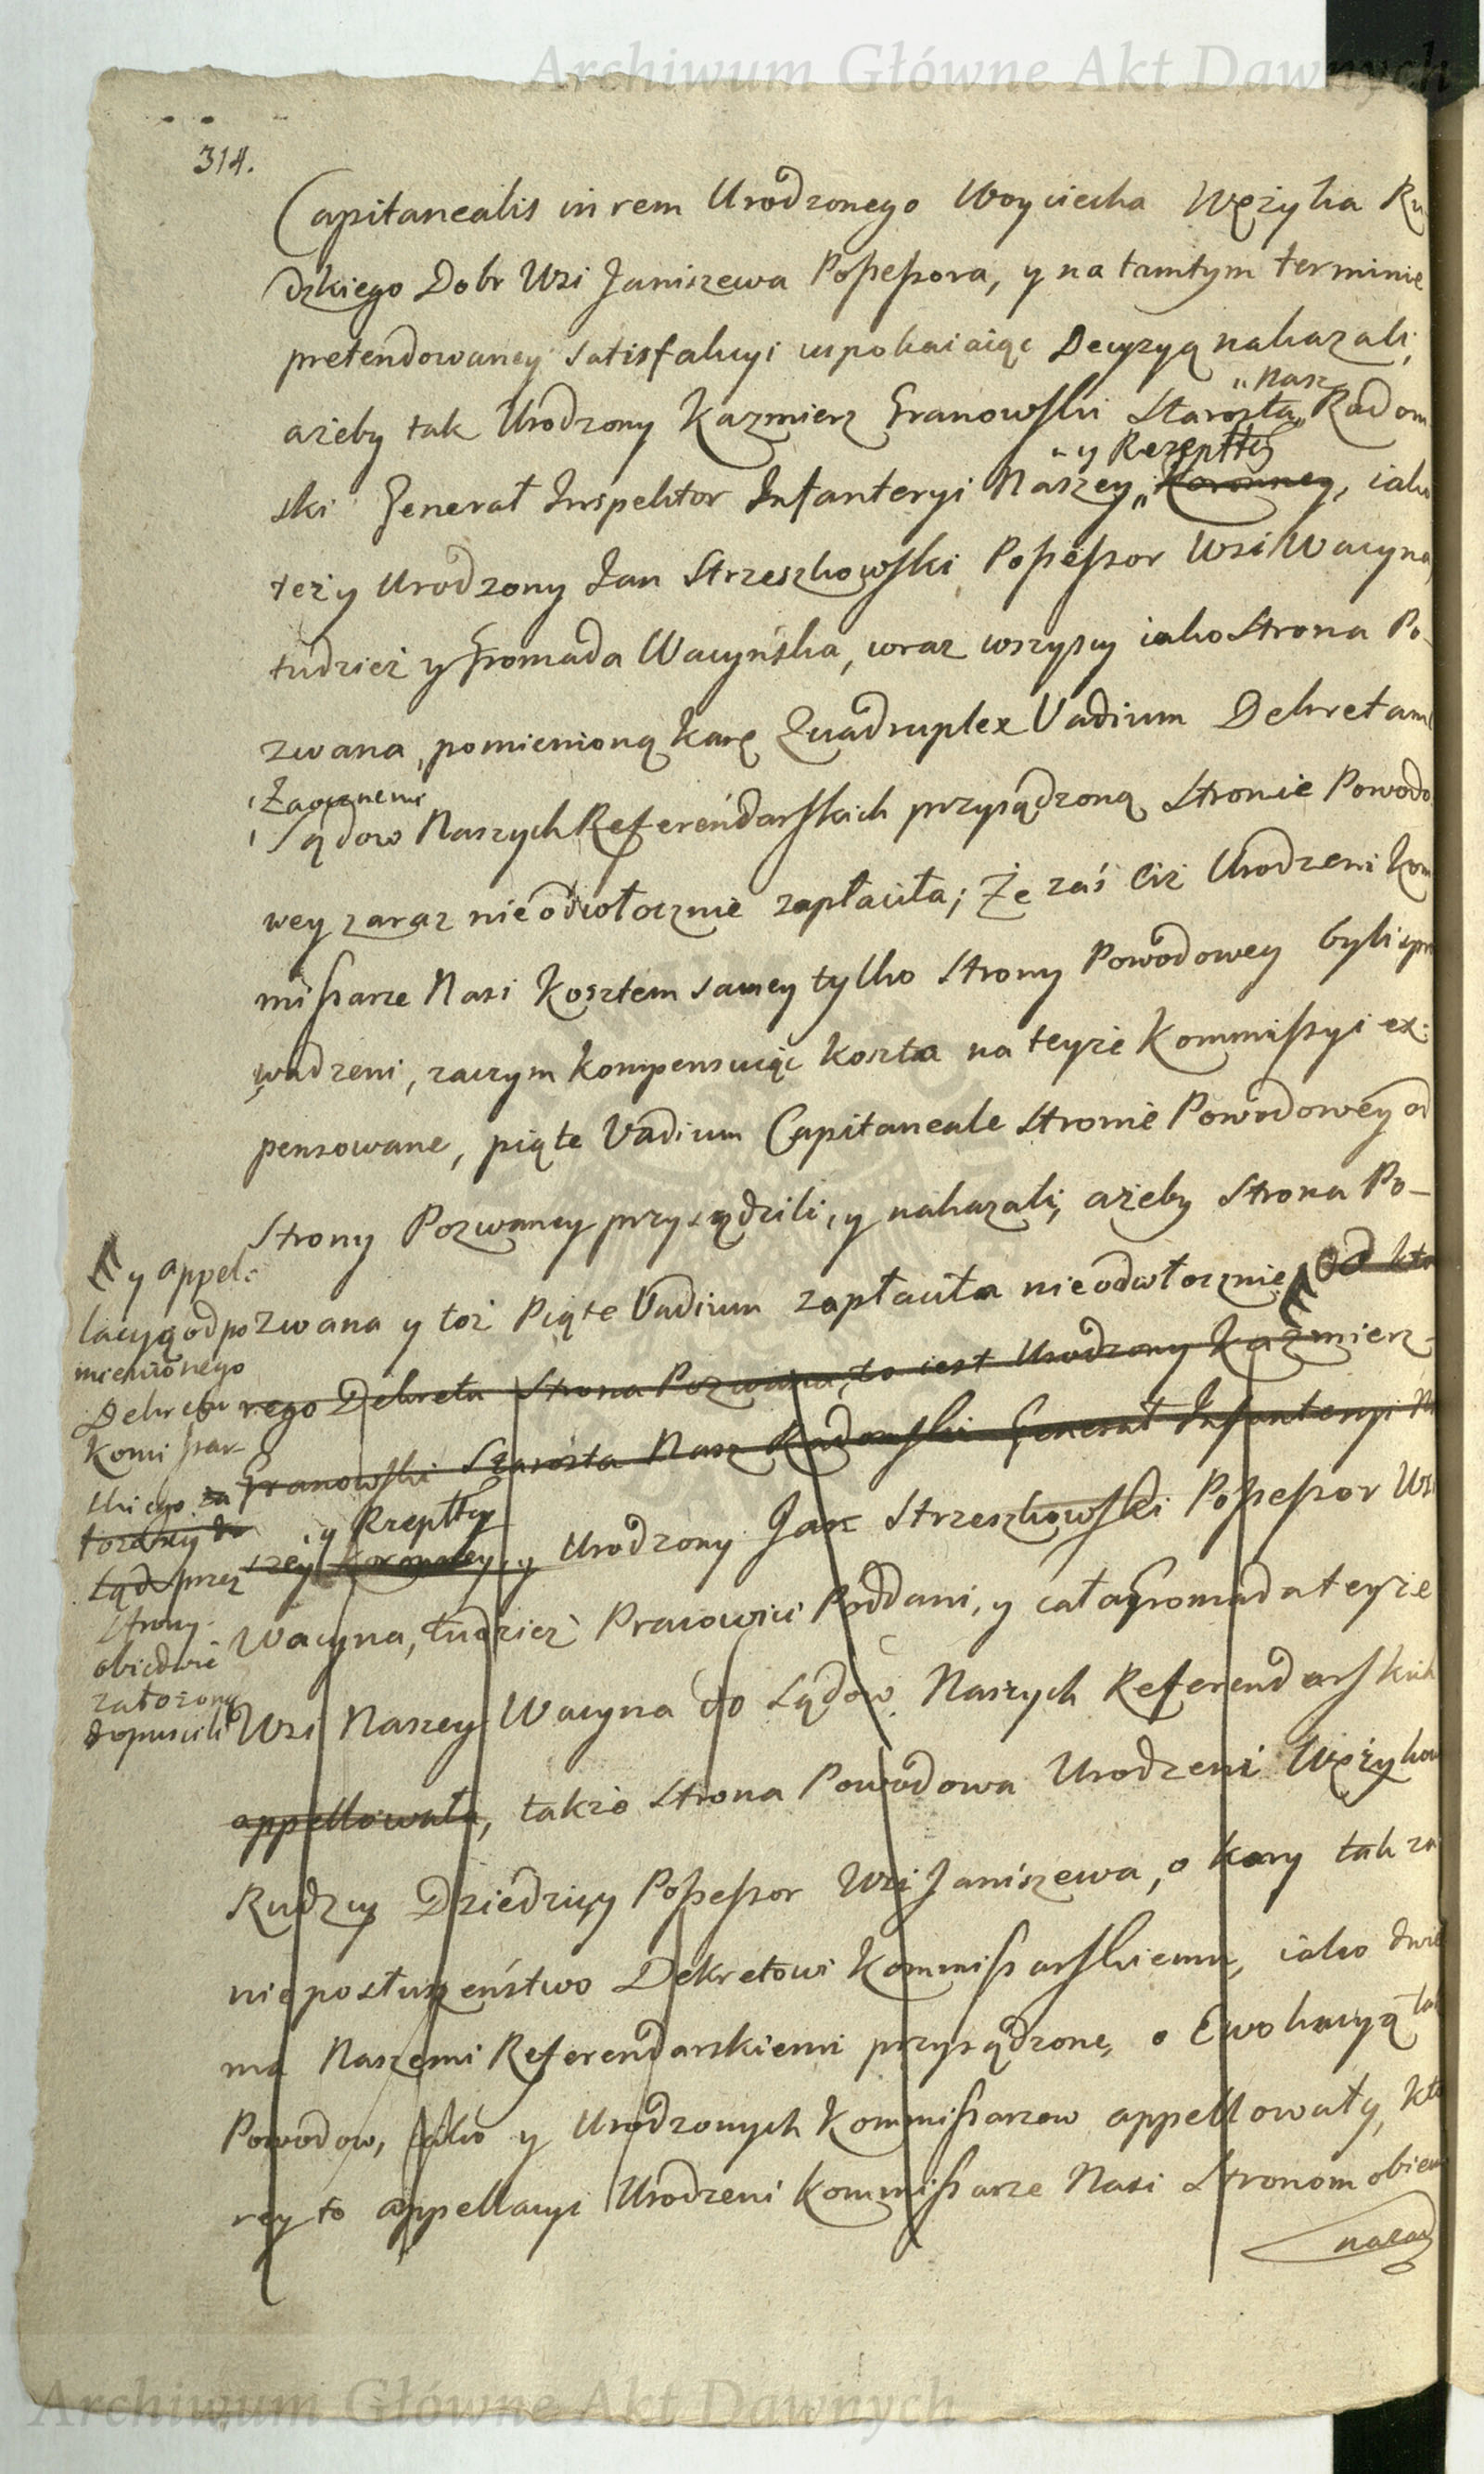 Archiwum Główne Akt Dawnych
314.
Capitanealis in rem Urodzonego Woyciecha Wężyka Ru
dzkiego Dobr Wsi Janiszewa Possessora, y na tamtym terminie
pretendowaney satisfakcyi uspokaiaiąc Decyzyą nakazali,
"Nasz
ażeby tak Urodzony Kazmierz Granowski Starosta" Radom
"y Rzeptty
ski Generał Inspektor Infanteryi Naszey" Koronney, iako
też y Urodzony Jan Strzeszkowski Possessor Wsi Wacyna,
tudzież y Gromada Wacyńska, wraz wszyscy iako Strona Po-
zwana, pomienioną karę Quadruplex Vadium Dekretami
Zaocznemi
Sądow Naszych Referendarskich przysądzoną Stronie Powodo
wey zaraz nieodwłocznie zapłaciła; Że zaś Ciż Urodzeni Kom
missarze Nasi Kosztem samey tylko Strony Powodowey byli spro
wadzeni, zaczym kompensuiąc koszta na teyże Kommissyi ex:
pensowane, piąte Vadium Capitaneale Stronie Powodowey od
Strony Pozwaney przysądzili, y nakazali, ażeby Strona Po-
zwana y toż Piąte Vadium zapłaciła nieodwłocznie, od kto
rego Dekretu Strona Pozwana, to iest Urodzony Kazmierz
Granowski Starosta Nasz Radomski Generał Infanteryi Na
y Rzeptty
szey Koronney, y Urodzony Jan Strzeszkowski Possessor Wsi
Wacyna, tudzież Pracowici Poddani, y cała Gromada teyże
Wsi Naszey Wacyna do Sądow Naszych Referendarskich
appellowała, także Strona Powodowa Urodzeni Wężykow
Rudzcy Dziedzicy Possessor Wsi Janiszewa, o kary tak za
nieposłuszeństwo Dekretowi Kommissarskiemu, iako dwie
ma Naszemi Referendarskiemi przysądzone, o Ewokacyą tak
Powodow, iako y Urodzonych Kommissarzow appellowały, kto
rey to appellacyi Urodzeni Kommissarze Nasi Stronom obiem
nazad
y appel:
lacyą od po
mienionego
Dekretu
Komissar
skiego za
Sąd przez
Strony
obiedwie
założoną
dopuscili
Archiwum Główne Akt Dawnych